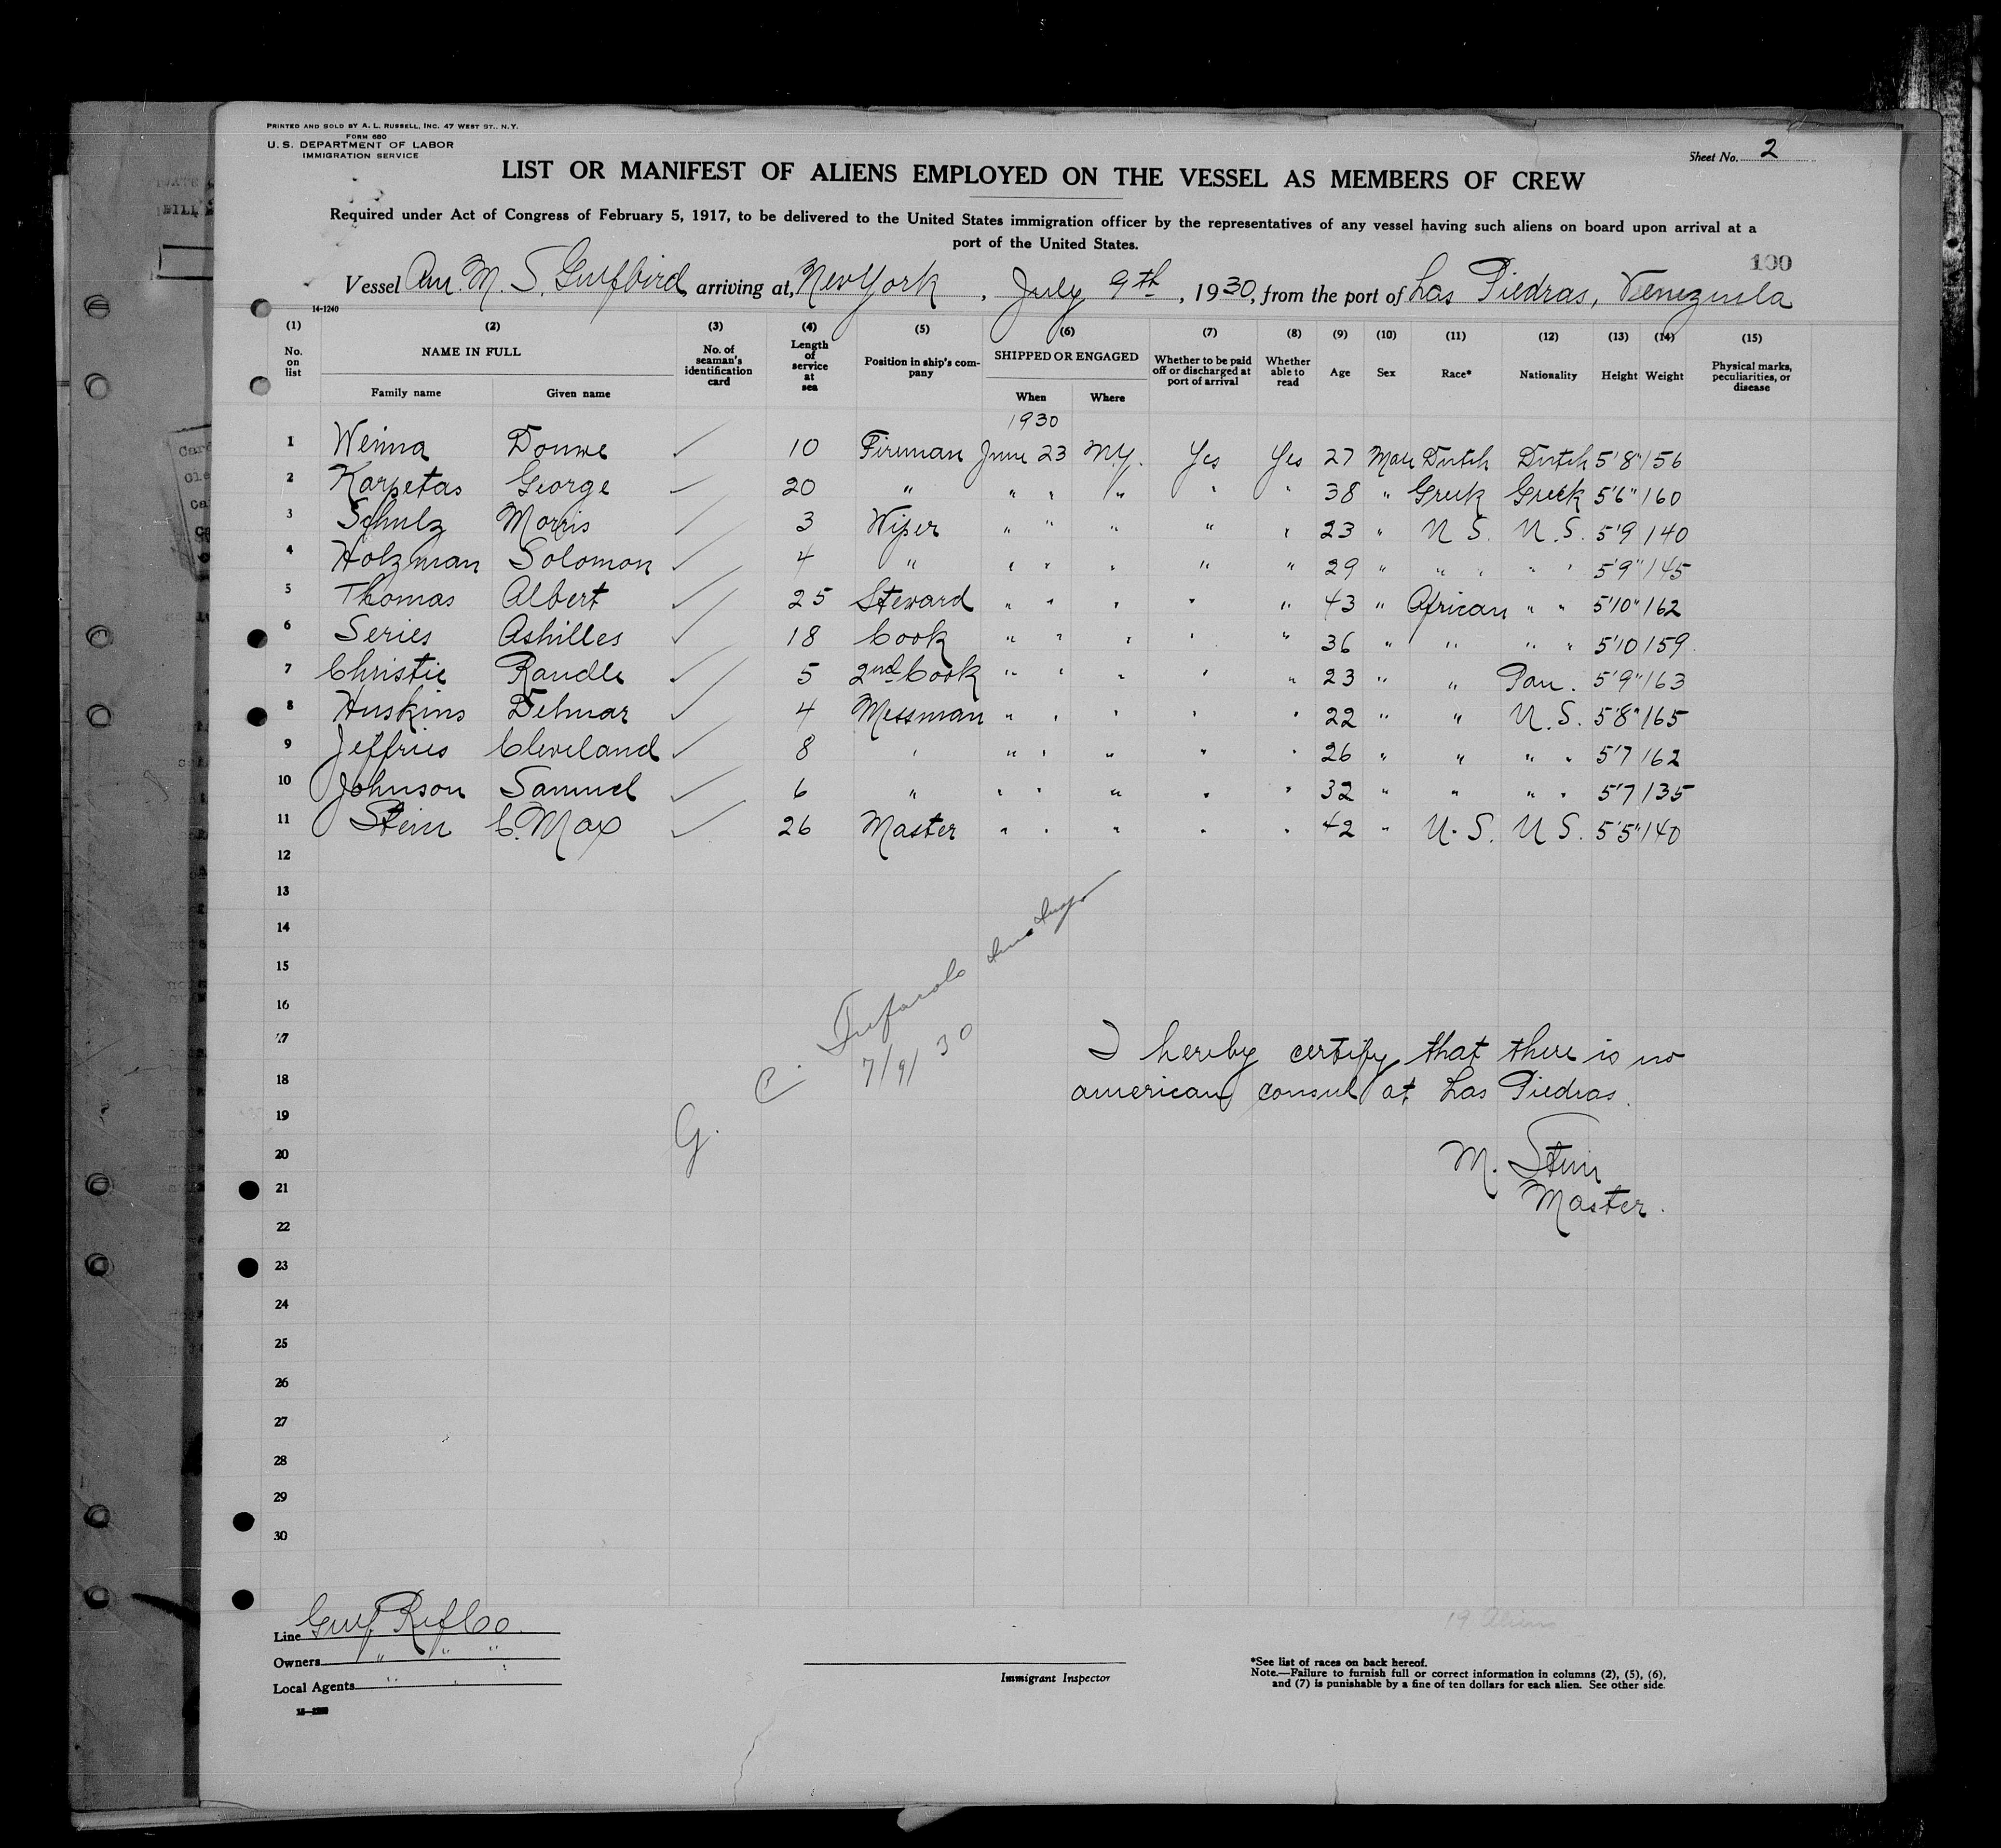 PRINTED AND SOLD BY A. L. RUSSELL, INC. 47 WEST ST., N.Y.
FORM 680
U. S. DEPARTMENT OF LABOR
IMMIGRATION SERVICE
Sheet No. 2
LIST OR MANIFEST OF ALIENS EMPLOYED ON THE VESSEL AS MEMBERS OF CREW
Required under Act of Congress of February 5, 1917, to be delivered to the United States immigration officer by the representatives of any vessel having such aliens on board upon arrival at a
port of the United States.
100
Vessel Am. M. S. Gulfbird, arriving at, New York, July 9th, 1930, from the port of Las Piedras, Venezuela
14-1240
(1) (2) (3) (4) (5) (6) (7) (8) (9) (10) (11) (12) (13) (14) (15)
No. on list NAME IN FULL Family name Given name No. of seaman's identification card Length of service at sea Position in ship's company SHIPPED OR ENGAGED When Where Whether to be paid off or discharged at port of arrival Whether able to read Age Sex Race* Nationality Height Weight Physical marks, peculiarities, or disease
1930
1 Weima Douwe ✓ 10 Fireman June 23 N.Y. Yes Yes 27 Male Dutch Dutch 5'8" 156
2 Karpetas George ✓ 20 " " " " " " 38 " Greek Greek 5'6" 160
3 Schulz Morris ✓ 3 Wiper " " " " " 23 " U S. U.S. 5'9 140
4 Holzman Solomon ✓ 4 " " " " " " 29 " " " " " 5'9" 145
5 Thomas Albert ✓ 25 Steward " " " " " 43 " African " " 5'10" 162
6 Series Ashilles ✓ 18 Cook " " " " " 36 " " " " 5'10 159
7 Christie Randle ✓ 5 2nd Cook " " " " " 23 " " Pan. 5'9" 163
8 Huskins Delmar ✓ 4 Messman " " " " " 22 " " U.S. 5'8" 165
9 Jeffries Cleveland ✓ 8 " " " " " " 26 " " " " 5'7 162
10 Johnson Samuel ✓ 6 " " " " " " 32 " " " " 5'7 135
11 Stein C. Max ✓ 26 Master " " " " " 42 " U.S. U S. 5'5" 140
12
13
14
15
16
17
18
19
20
21
22
23
24
25
26
27
28
29
30
G. C.
7/9/30
I hereby certify that there is no
american consul at Las Piedras.
M. Stein
Master.
19 Aliens
Line Gulf Ref Co.
Owners " " "
Local Agents " "
Immigrant Inspector
*See list of races on back hereof.
Note.—Failure to furnish full or correct information in columns (2), (5), (6),
and (7) is punishable by a fine of ten dollars for each alien. See other side.